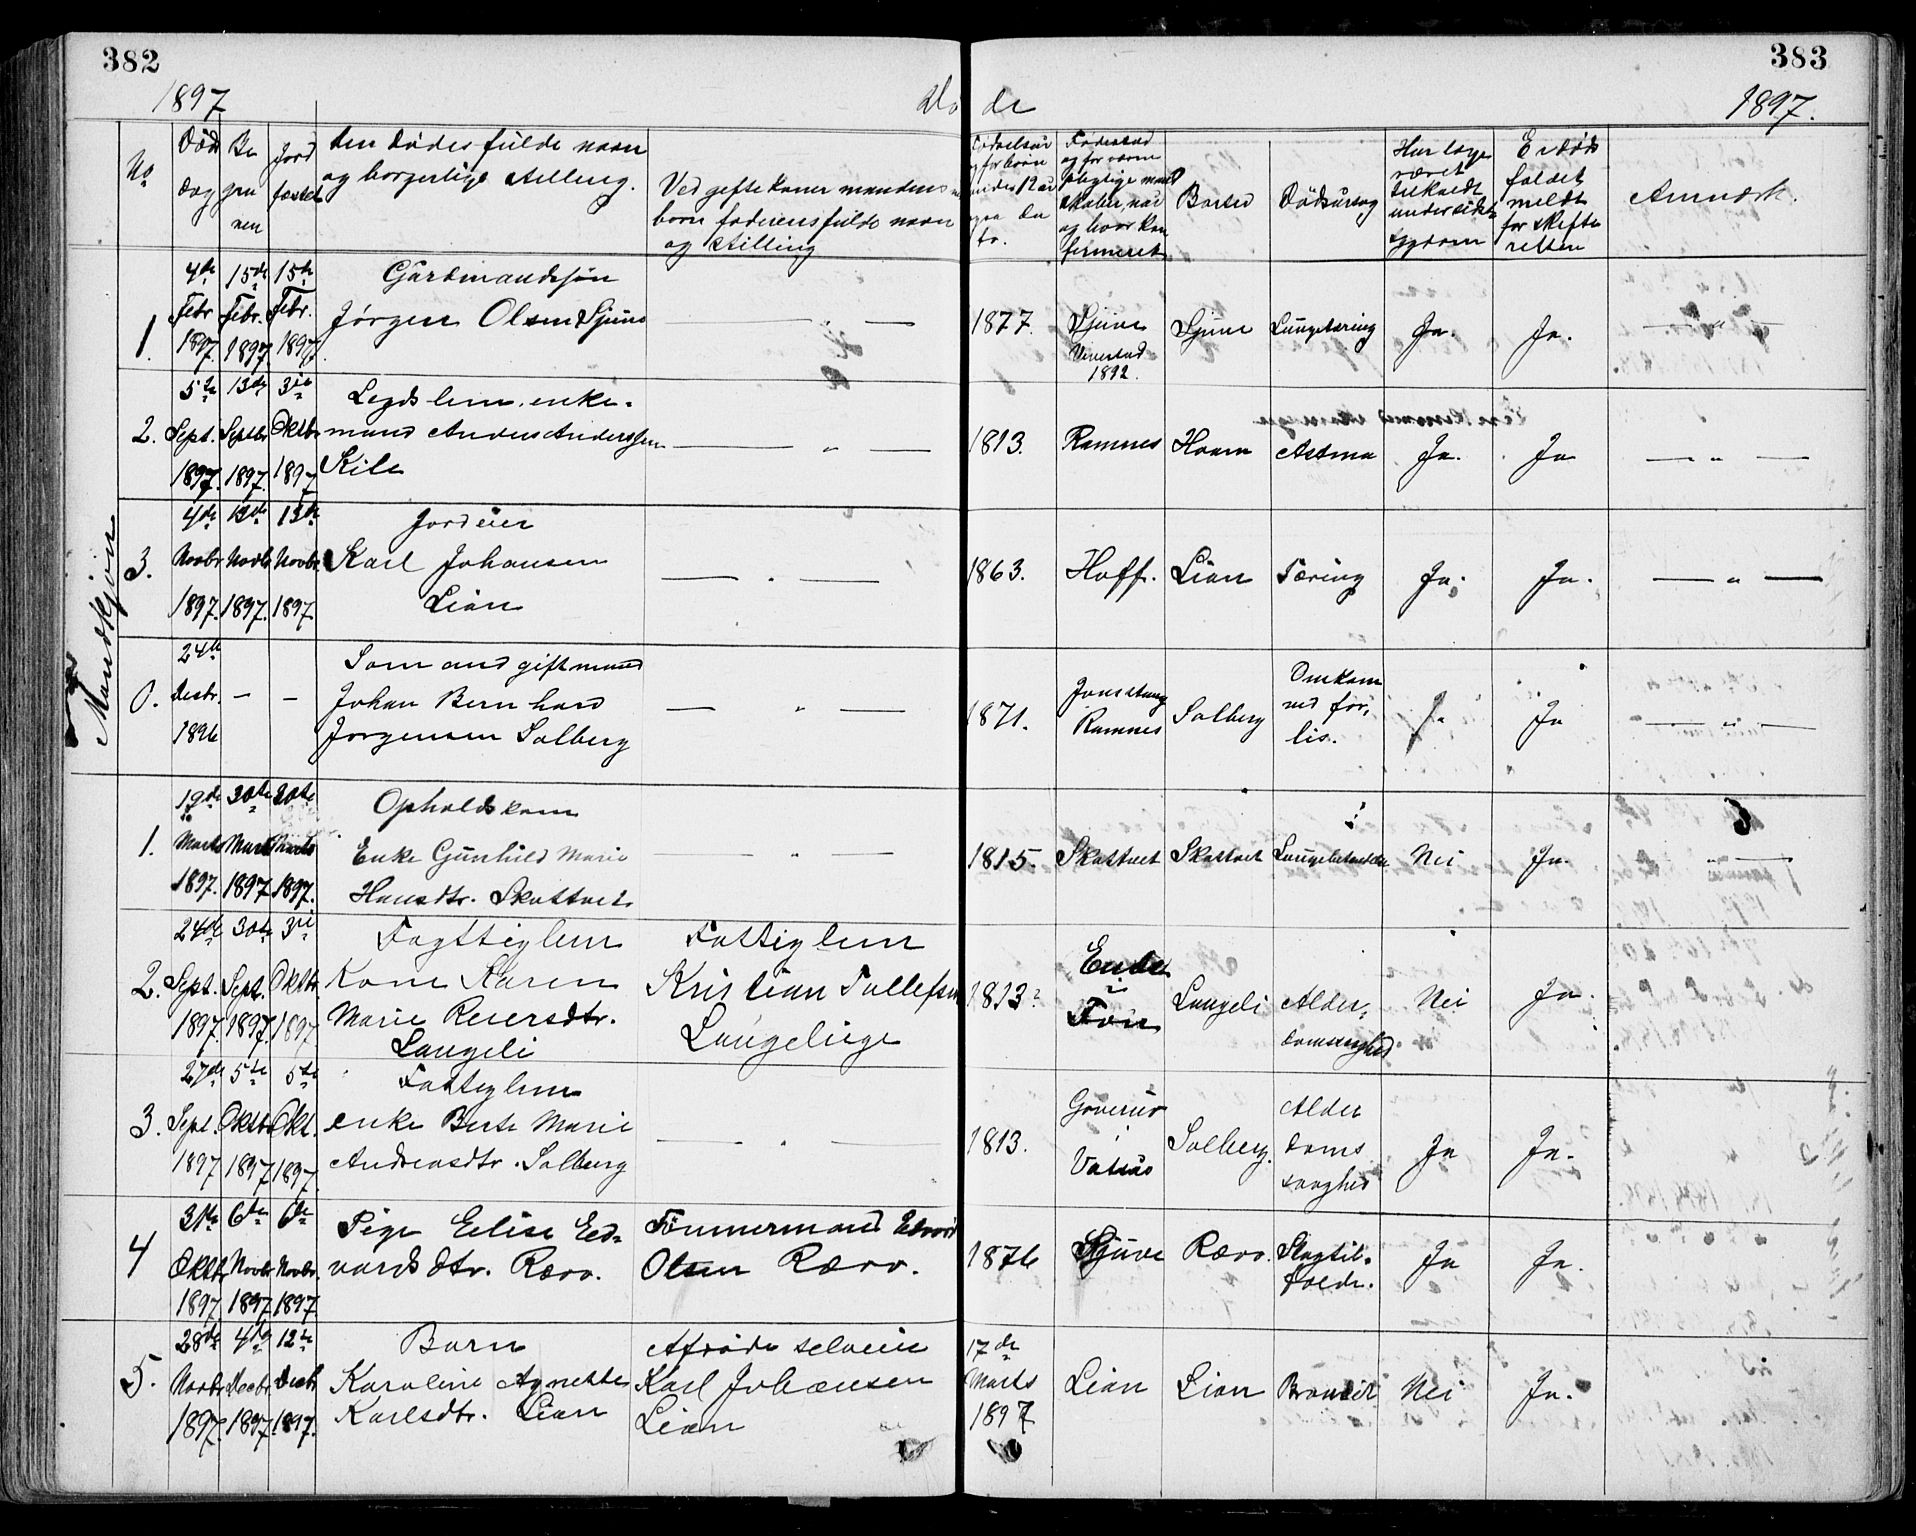 382
383
1897
Dø de
1897.
No
Død
dag
Be
gra
nen
Jord
fæstet
den dødes fulde navn
og borgerlige stilling.
Ved gifte koner mandens
børn faderens fulde navn
og stilling
Fødselsaar
og for børn
under 12 aar
ogsa da
to.
Fødested
og for værne
pligtige mand
skaber, naar
og hvor kon
firmeret
Bosted
Dødsårsag
Har læge
været
tilkaldt
under sidste
sygdom
Er døds
faldet
meldt
for skifte
retten
Anmærk.
Mandkjøn
1.
4de Febr 1897
15de Febr. 1897
15de Febr. 1897
Gårdmandssøn
Jørgen Olsen Gjuve
— " —
1877.
Gjuve
Vivestad
1892.
Gjuve
Lungetæring
Ja.
Ja.
— " —
2.
5te Sept. 1897
13de Septbr 1897.
3die Oktbr 1897
Legdslem, enke-
mand Anders Anderssen
Kile
— " —
1813.
Ramnes
Hoam
Astma
Ja.
Ja
— " —
3.
4de Novbr 1897.
13de Novbr 1897.
13de Novbr. 1897
Jordeier
Karl Johansen
Lian
— " —
1863.
Hoff.
Lian
Tæring
Ja.
Ja.
— " —
0.
24de Desbr. 1896
—
—
Sømand gift mand
Johan Bernhard
Jørgensen Solberg
— " —
1871.
Ramnes
Solberg
Omkom
ved for-
lis.
Ja
— " —
1.
19de Marts 1897.
30te Marts 1897
30te Marts 1897.
Opholdskone
Enke Gunhild Marie
Hansdtr. Skottvet
— " —
1815.
Skottvet
Skottvet
Nei
Ja.
— " —
2.
24de Sept. 1897.
30te Sept. 1897.
3die Oktbr. 1897
Fagttiglem
Kone Karen
Marie Reiersdtr.
Langeli
Fattiglem
Kristian Tollefsen
Langelieie
1813
Ende
i
Fon
Langeli
Alder-
domssvaghed
Nei
Ja.
3.
27de Sept. 1897
5te Oktbr 1897
5te Okt. 1897.
Fattiglem
enke Berte Marie
Andreasdtr. Solberg
— " —
1813.
Solberg.
Alder
doms
svaghed
Ja
Ja.
4
31te Oktbr 1897
6te Novbr 1897
6te Novbr. 1897
Pige Elise Ed-
vardsdtr. Rærv.
Tømmermand Edvard
Olsen Rærv.
1876
Gjuve
Rærv.
Slagtil-
fælde.
Ja
Ja.
5.
28de Novbr 1897.
4de Decbr 1897
12te Decbr 1897.
Barn
Karoline Agnethe
Karlsdtr. Lian
Afdøde selveier
Karl Johansen
Lian
17de
Marts
1897
Lian
Lian
Nei
Ja.